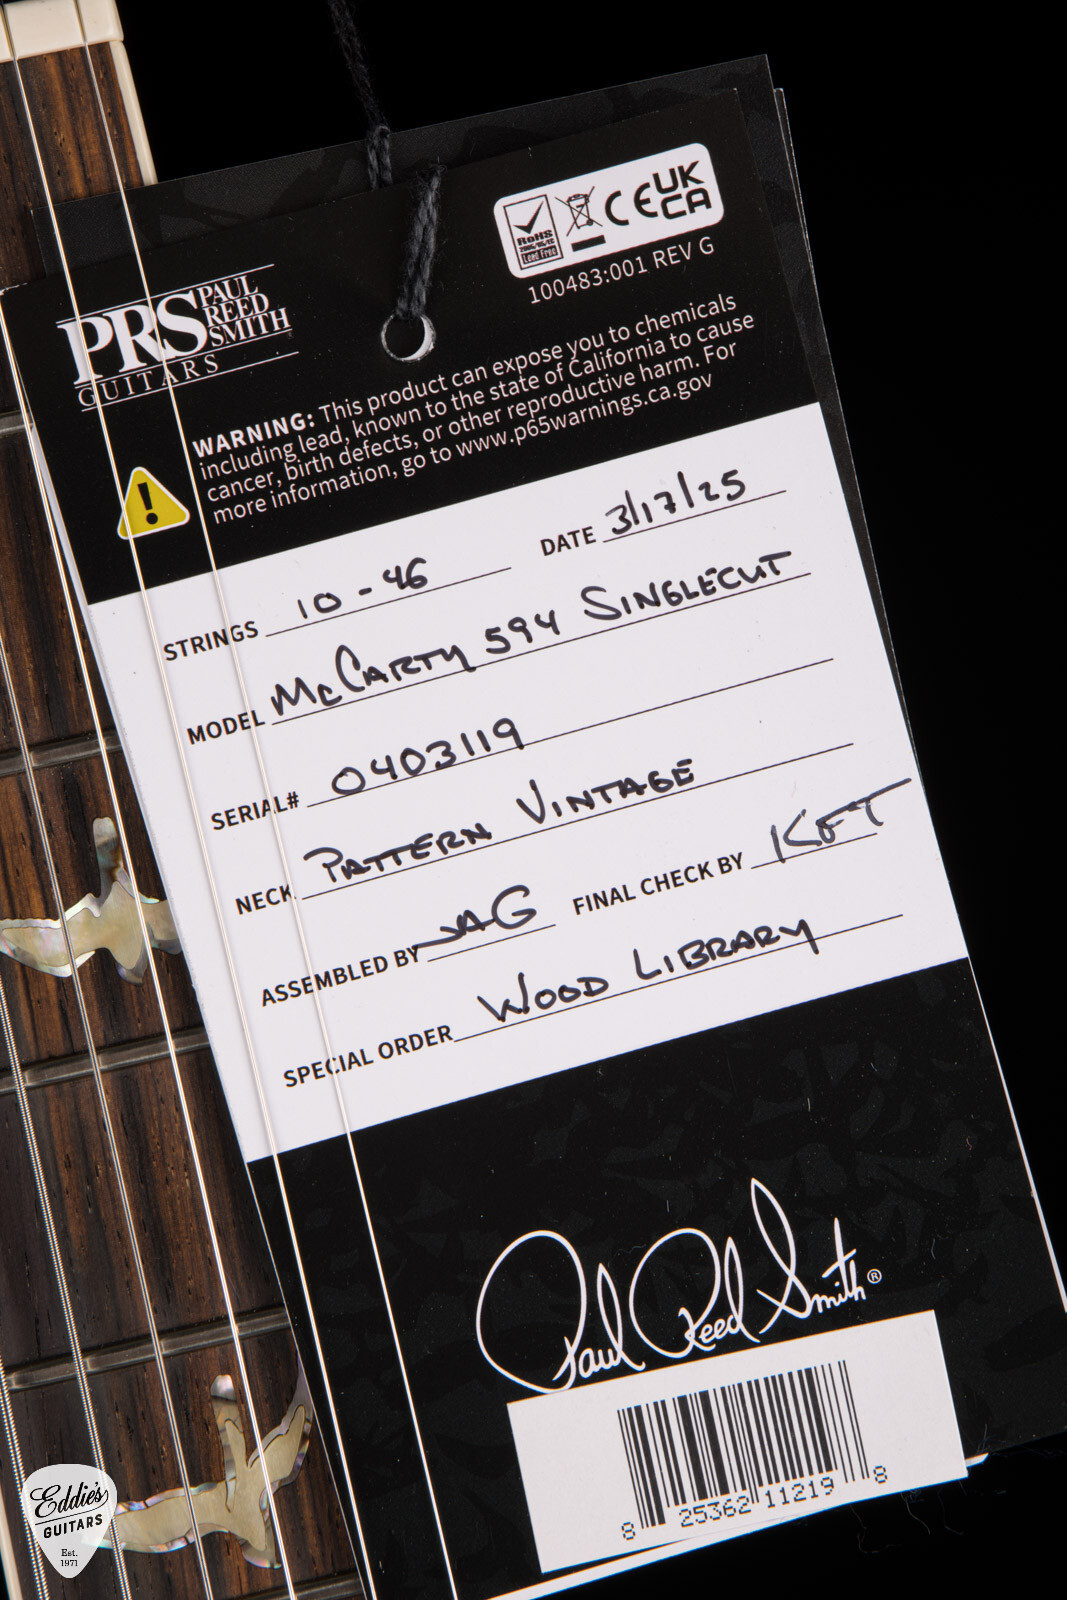 RoHS
2005/95/EC
Lead Free
CE
UK
CA
100483:001 REV G
PRS PAUL
REED
SMITH
GUITARS
WARNING: This product can expose you to chemicals
including lead, known to the state of California to cause
cancer, birth defects, or other reproductive harm. For
more information, go to www.p65warnings.ca.gov
STRINGS 10 - 46 DATE 3/17/25
MODEL McCARTY 594 SINGLECUT
SERIAL# 0403119
NECK PATTERN VINTAGE
ASSEMBLED BY JAG FINAL CHECK BY KFT
SPECIAL ORDER WOOD LIBRARY
Paul Reed Smith®
8 25362 11219 8
Eddie's
GUITARS
Est.
1971